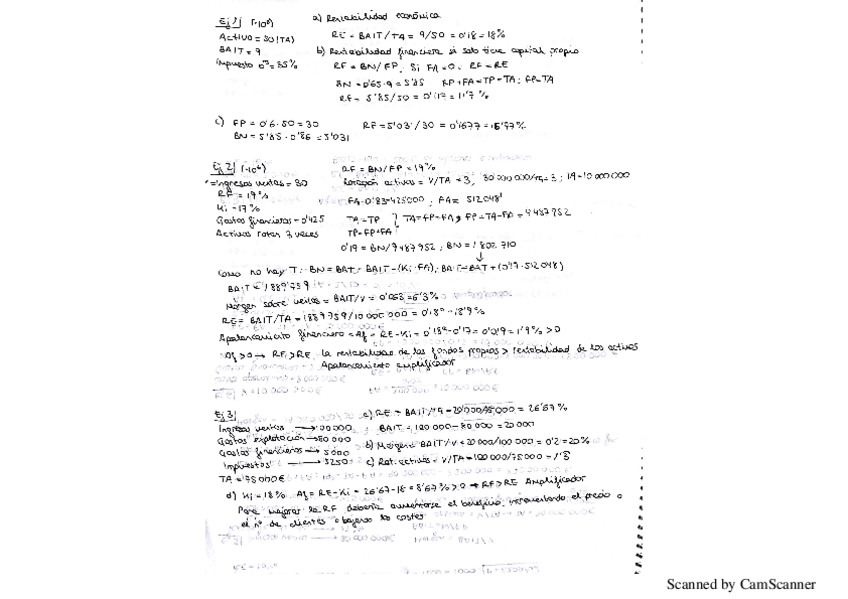 Ej 1| (·10⁶)
Activo = 50 (TA)
BAIT = 9
Impuesto = 35%
a) Rentabilidad económica
RE = BAIT/TA = 9/50 = 0'18 = 18%
b) Rentabilidad financiera si solo tiene capital propio
RF = BN/FP, Si FA = 0. RF = RE
BN = 0'65·9 = 5'85 FP+FA=TP=TA; FP=TA
RF = 5'85/50 = 0'117 = 11'7%
c) FP = 0'6·50 = 30 RF = 5'031/30 = 0'1677 = 16'77%
BN = 5'85·0'86 = 5'031
Ej 2| (·10⁶)
Ingresos ventas = 30
RF = 19%
Ki = 17%
Gastos financieros = 0'425
Activos rotan 3 veces
RF = BN/FP = 19%
Rotación activos = V/TA = 3, 30 000 000/TA = 3; TA = 10 000 000
FA·0'83 = 425000, FA = 512048'
TA = TP
TP = FP+FA
TA = FP+FA, FP = TA-FA = 9487952
0'19 = BN/9487952; BN = 1802710
Como no hay T: BN = BAT = BAIT-(Ki·FA); BAIT = BAT+(0'17·512048)
BAIT = 1889759
Margen sobre ventas = BAIT/V = 0'063 = 6'3%
RE = BAIT/TA = 1889759/10 000 000 = 0'189 = 18'9%
Apalancamiento financiero = Af = RE-Ki = 0'189-0'17 = 0'019 = 1'9% > 0
Af > 0 → RF > RE la rentabilidad de los fondos propios > rentabilidad de los activos
Apalancamiento amplificador
Ej 3|
Ingresos ventas → 100000
Gastos explotación → 80000
Gastos financieros → 5000
Impuestos → 5250
TA = 75000€
a) RE = BAIT/TA = 20000/75000 = 26'67%
BAIT = 100000-80000 = 20000
b) Margen = BAIT/V = 20000/100000 = 0'2 = 20%
c) Rot. activos = V/TA =
d) Ki = 18% Af = RE-Ki = 26'67-18 = 8'67% > 0 → RF > RE Amplificador
Para mejorar la RF debería aumentarse el beneficio, incrementando el precio o
el nº de clientes o bajando los costes
Scanned by CamScanner